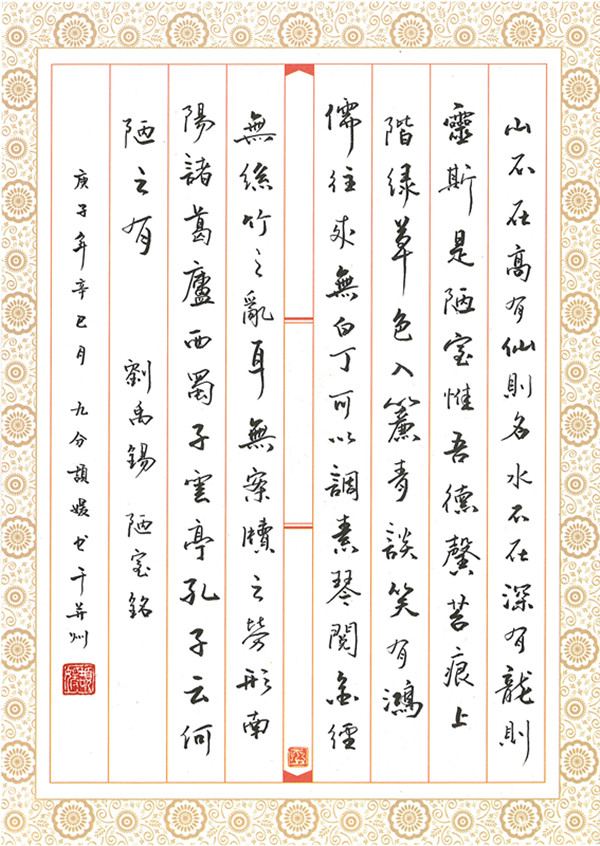 山不在高有仙則名水不在深有龍則
靈斯是陋室惟吾德馨苔痕上
階綠草色入簾青談笑有鴻
儒往來無白丁可以調素琴閱金經
無絲竹之亂耳無案牘之勞形南
陽諸葛廬西蜀子雲亭孔子云何
陋之有 劉禹錫 陋室銘
庚子年辛巳月 九分頡媛书于并州